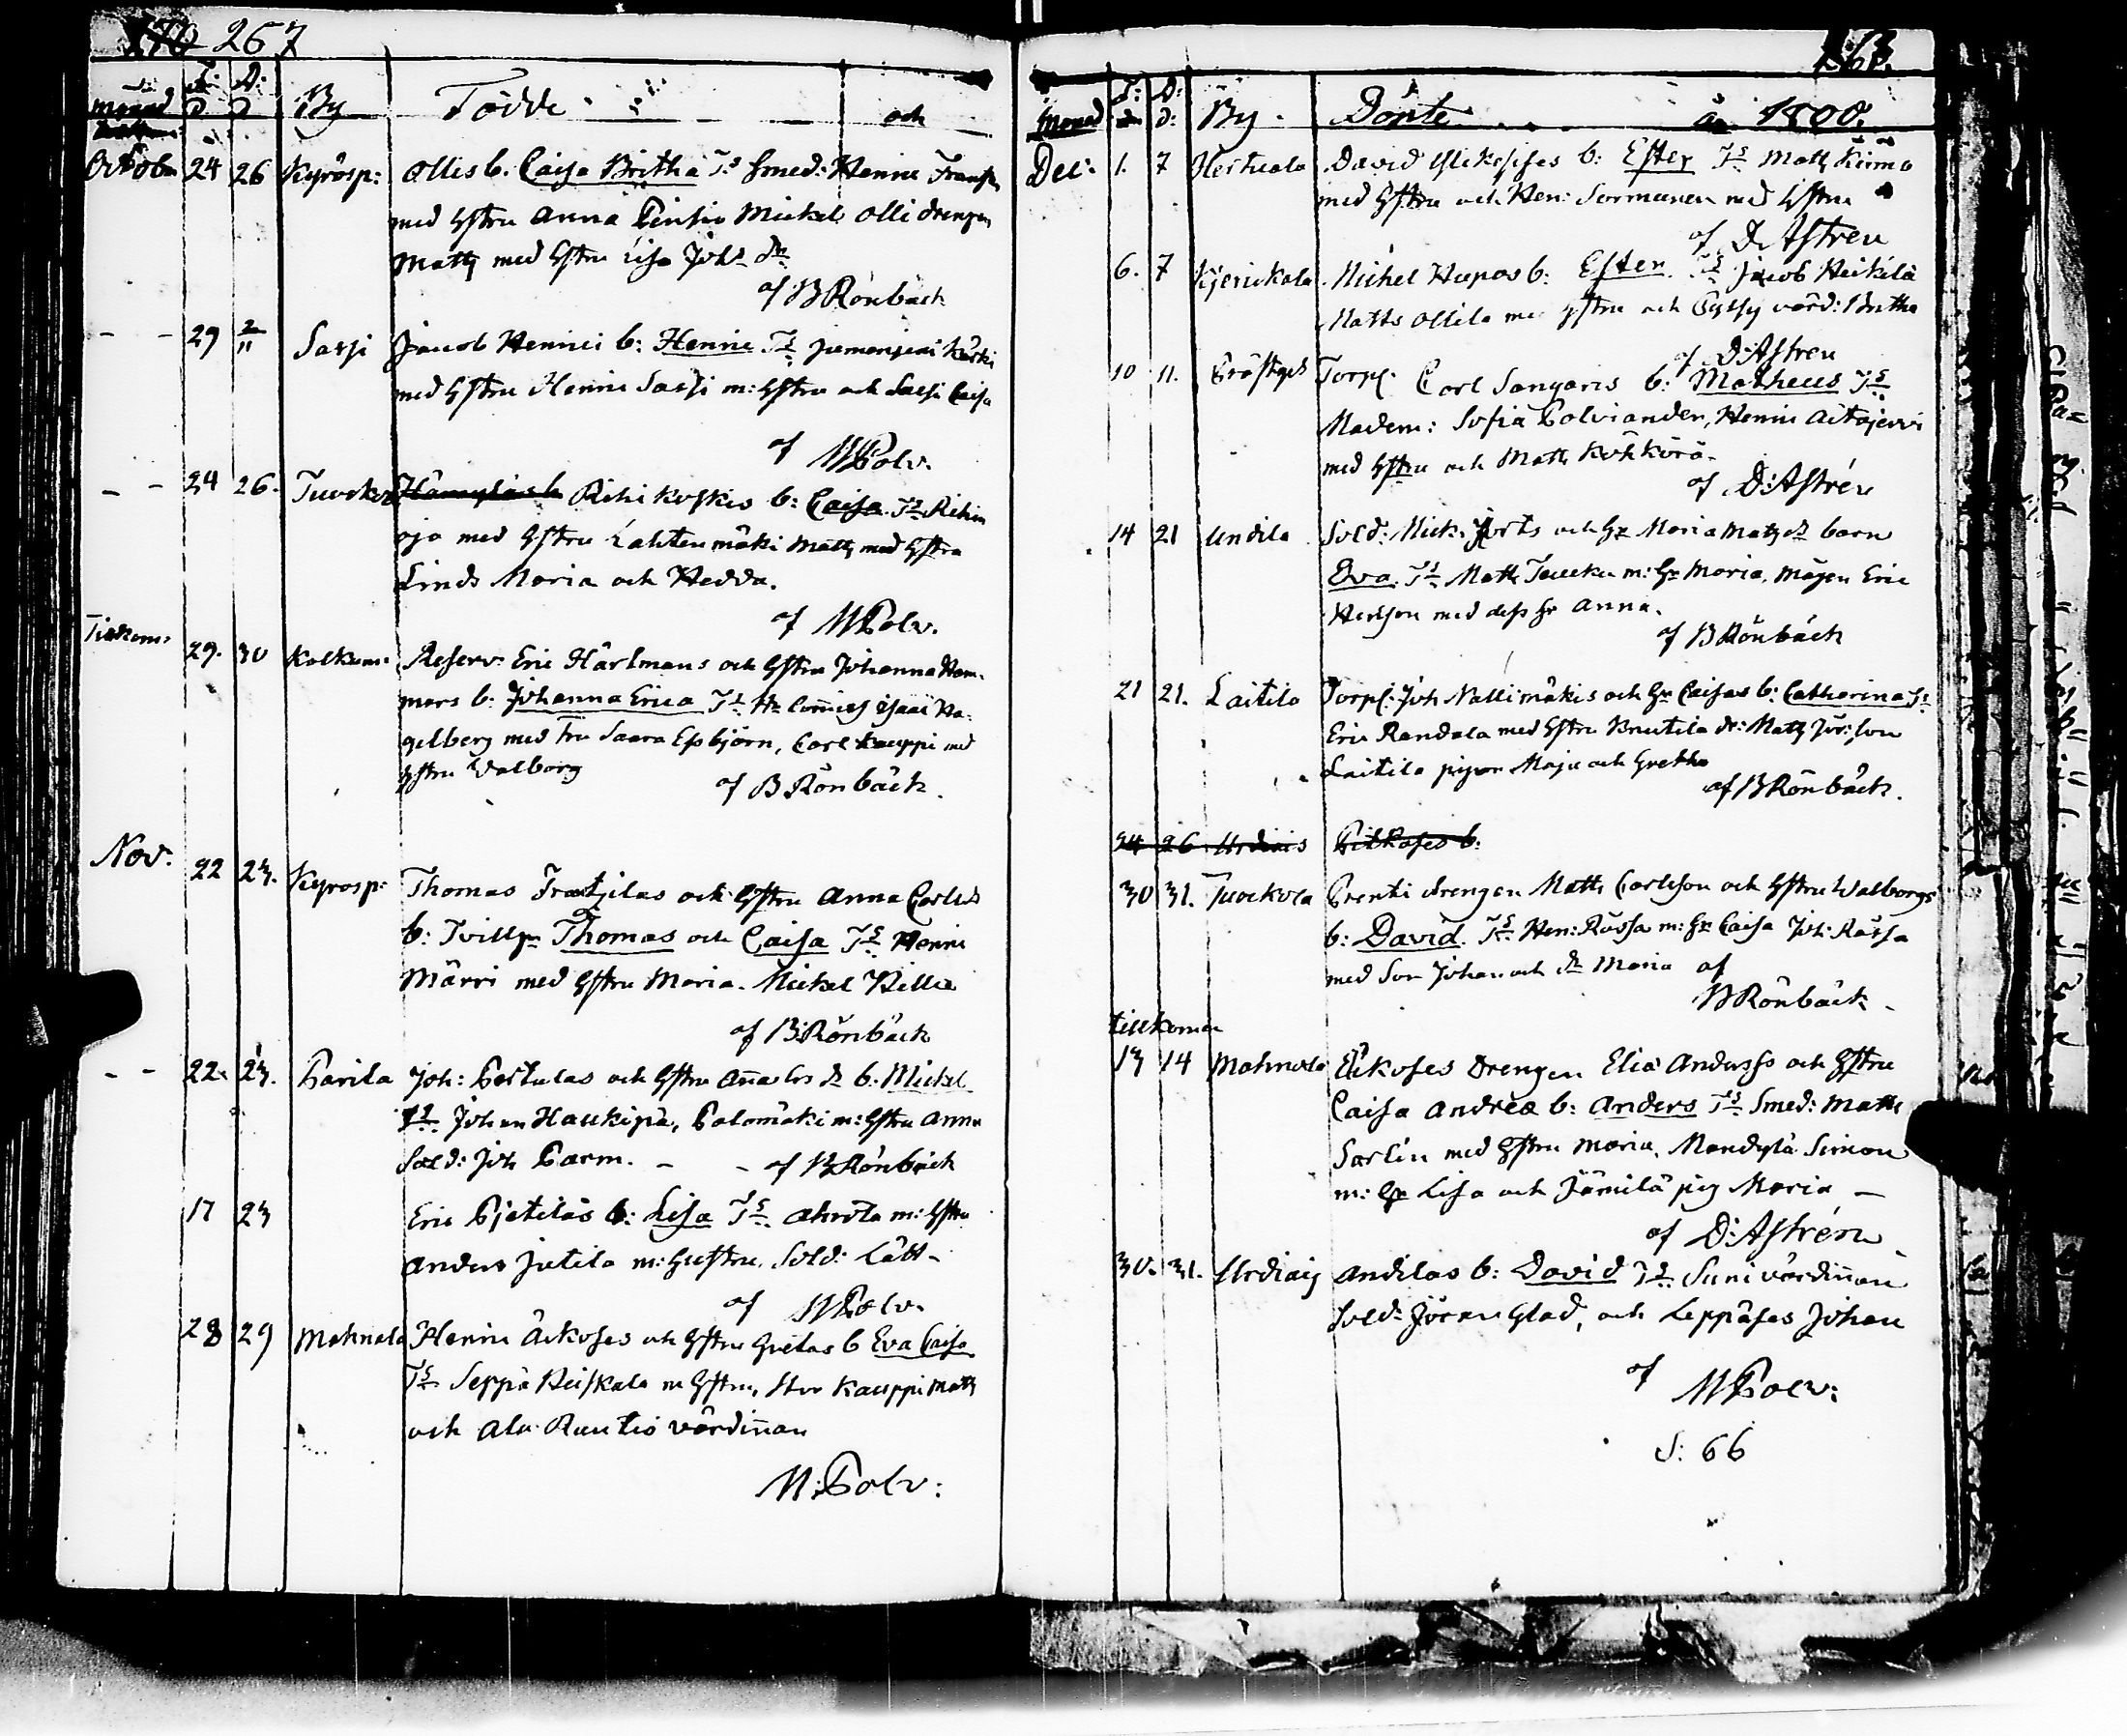 267
Månad F: d D: d By Födde och
Octob: 24 26 Kyrösp: Ollis b. Caisa Britha Ts Smed: Henric Frantz
med hstru Anna Pentio Mickel Olli drengen
Matts med hstru Lisa Johs dr
af B Rönbäck
- - 29 2/11 Sassi Jacob Henrici b: Henric Ts Kärki
med hstru Henric Sassi m: hstru och Sassi Caisa
af M Polv.
- - 24 26. Tuockola Rihikoskis b: Caisa Ts Rihin
oja med hstru Lahtenmäki Matts med hstru
Linds Maria och Hedda.
af M Polv.
Tilkom: 29. 30 Kalkun: Reserv: Eric Härlmans och hstru Johanna Ham-
mars b: Johanna Erica Ts Hr Isaac Ha-
gelberg med fru Saara Essbjörn, Carl Kauppi med
hstru Walborg af B Rönbäck.
Nov. 22 23. Kyrosp: Thomas Frantzilas och hstru Anna Carlsd
b: Tvillr Thomas och Caisa Ts Henric
Märri med hstru Maria. Mickel Kille
af B: Rönbäck
- - 22. 23. Parila Joh: Pertulas och hstru Anna dr b. Mickel
Ts Johan Haukipä, Palomäki m: hstru Anna
Sold: Joh Parm. - - af B Rönbäck
17 23 Eric Pjetiläs b: Lisa Ts Ahrola m: hstru
Anders Jutila m: hustru, Sold: Lätt-
af M Polv.
28 29 Mahnala Henric Äikoses och hstru Gretas b Eva Caisa
Ts Seppä Heiskala m hstru, Stor Kauppi Matts
och Ala Runtio värdinnan
M: Polv:
263.
Månad F: d D: d: By. Döpte År 1800.
Dec: 1. 7 Hertuala David b: Ester Ts Matts Kirmo
med hstru och Hen: Sormunen med hstru
af D. Astren
6. 7 Kjerickala Michel Hupos b: Ester Ts Jacob Heikilä
Matts Ollila med hstru och värd: Britha
af D: Astren
10 11. Torp: Carl Sangaris b: Matheus Ts
Madem: Sofia Polviander, Henric Aitajervi
med hstru och Matts Kukkurä.
af D: Astrén
14 21 Undila Sold: Mick: Hurts och Hr Maria Matzdr barn
Eva Ts Matts Tuucku m: Hr Maria, mågen Eric
Hersson med dess hr Anna.
af B Rönbäck
21 21. Laitila Torp: Joh Nallimäkis och Hr Caisas b: Catharina Ts
Eric Randala med hstru Knutila dr: Matts Jör: son
Laitila pigor Maja och Gretha
af B Rönbäck.
24 26 Urdiais Pitkoses b:
30 31. Tuockola Prenti drengen Matts Carlsson och hstru Walborgs
b: David Ts Hen: Rässa m: hr Caisa Joh: Rässa
med Son Johan och dr Maria af
B Rönbäck
tillkomer
13 14 Mahnala Äikoses Drengen Elia Anderss och hstru
Caisa Andreæ b: Anders Ts Smed: Matts
Sarlin med hstru Maria, Mandylä Simon
m: hr Lisa och Jämilä pig Maria -
af D: Astrén
30. 31. Urdiais Andilas b: David Ts Suni värdinnan
Sold: Jöran Glad, och Leppäses Johan
af M Polv:
S: 66